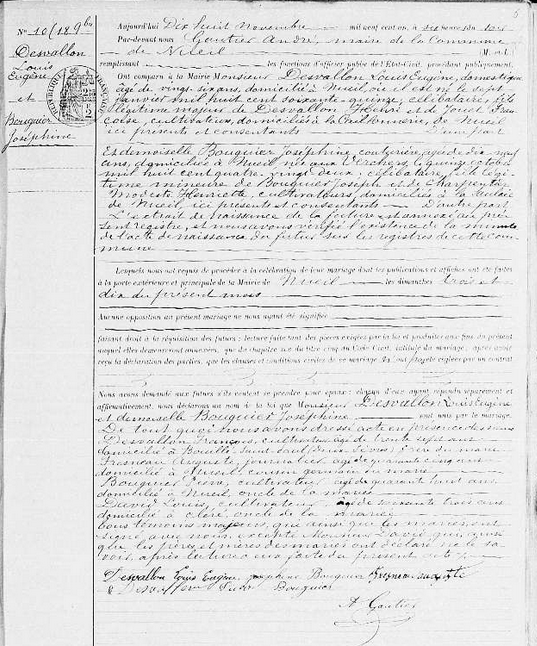 N° 10 (189
Desvallon
Louis
Eugène
et
Bouguier
Joséphine
Aujourd'hui Dix huit novembre mil neuf cent un, à heures du
Par-devant nous Gautier André, maire de la Commune
de Nueil
remplissant les fonctions d'officier public de l'Etat-Civil, procédant publiquement,
Ont comparu à la Mairie Monsieur Desvallon Louis Eugène, domestique
âgé de vingt-six ans, domicilié à Nueil, où il est né le sept
janvier mil huit cent soixante-quinze, célibataire, fils
légitime majeur de Desvallon Henri et de
cultivateurs, domiciliés à la de Nueil
ici présents et consentants D'une part
Et demoiselle Bouguier Joséphine, couturière, âgée de dix-neuf
ans, domiciliée à Nueil née aux Verchers, le quinze octobre
mil huit cent quatre-vingt-deux, célibataire, fille légi-
time mineure de Bouguier Joseph et de Charpentier
Modeste Henriette, cultivateurs, domiciliés à la
de Nueil, ici présents et consentants D'autre part
L'extrait de naissance de la future est annexé au pré-
sent registre, et nous avons vérifié l'existence de la minute
de l'acte de naissance du futur sur les registres de cette com-
mune
Lesquels nous ont requis de procéder à la célébration de leur mariage dont les publications et affiches ont été faites
à la porte extérieure et principale de la Mairie de Nueil les dimanches trois et
dix du présent mois
Aucune opposition au présent mariage ne nous ayant été signifiée
faisant droit à la réquisition des futurs : lecture faite tant des pièces exigées par la loi et produites aux fins du présent
auquel elles demeureront annexées, que du chapitre six du titre cinq du Code Civil, intitulé du mariage, après avoir
reçu la déclaration des parties, que les clauses et conditions civiles de ce mariage
Nous avons demandé aux futurs s'ils veulent se prendre pour époux : chacun d'eux ayant répondu séparément et
affirmativement, nous déclarons au nom de la loi que Monsieur Desvallon Louis Eugène
et demoiselle Bouguier Joséphine sont unis par le mariage.
De tout quoi, nous avons dressé acte en présence des sieurs
Desvallon François, cultivateur âgé de trente sept ans
domicilié à Bouillé-Saint-Paul (deux Sèvres) frère du marié
Fresneau Auguste, journalier, âgé de quarante cinq ans
domicilié à Nueil, cousin germain du marié
Bouguier Pierre, cultivateur, âgé de quarante huit ans
domicilié à Nueil, oncle de la mariée
David Louis, cultivateur, âgé de soixante trois ans
domicilié à Cléré, oncle de la mariée
Tous témoins majeurs, qui ainsi que les mariés, ont
signé avec nous, excepté Monsieur David qui, ainsi
que les pères et mères des mariés ont déclaré ne le sa-
voir, après lecture aux faite du présent acte
Desvallon Louis Eugène Joséphine Bouguier Fresneau Auguste
Desvallon Bouguier
A. Gautier